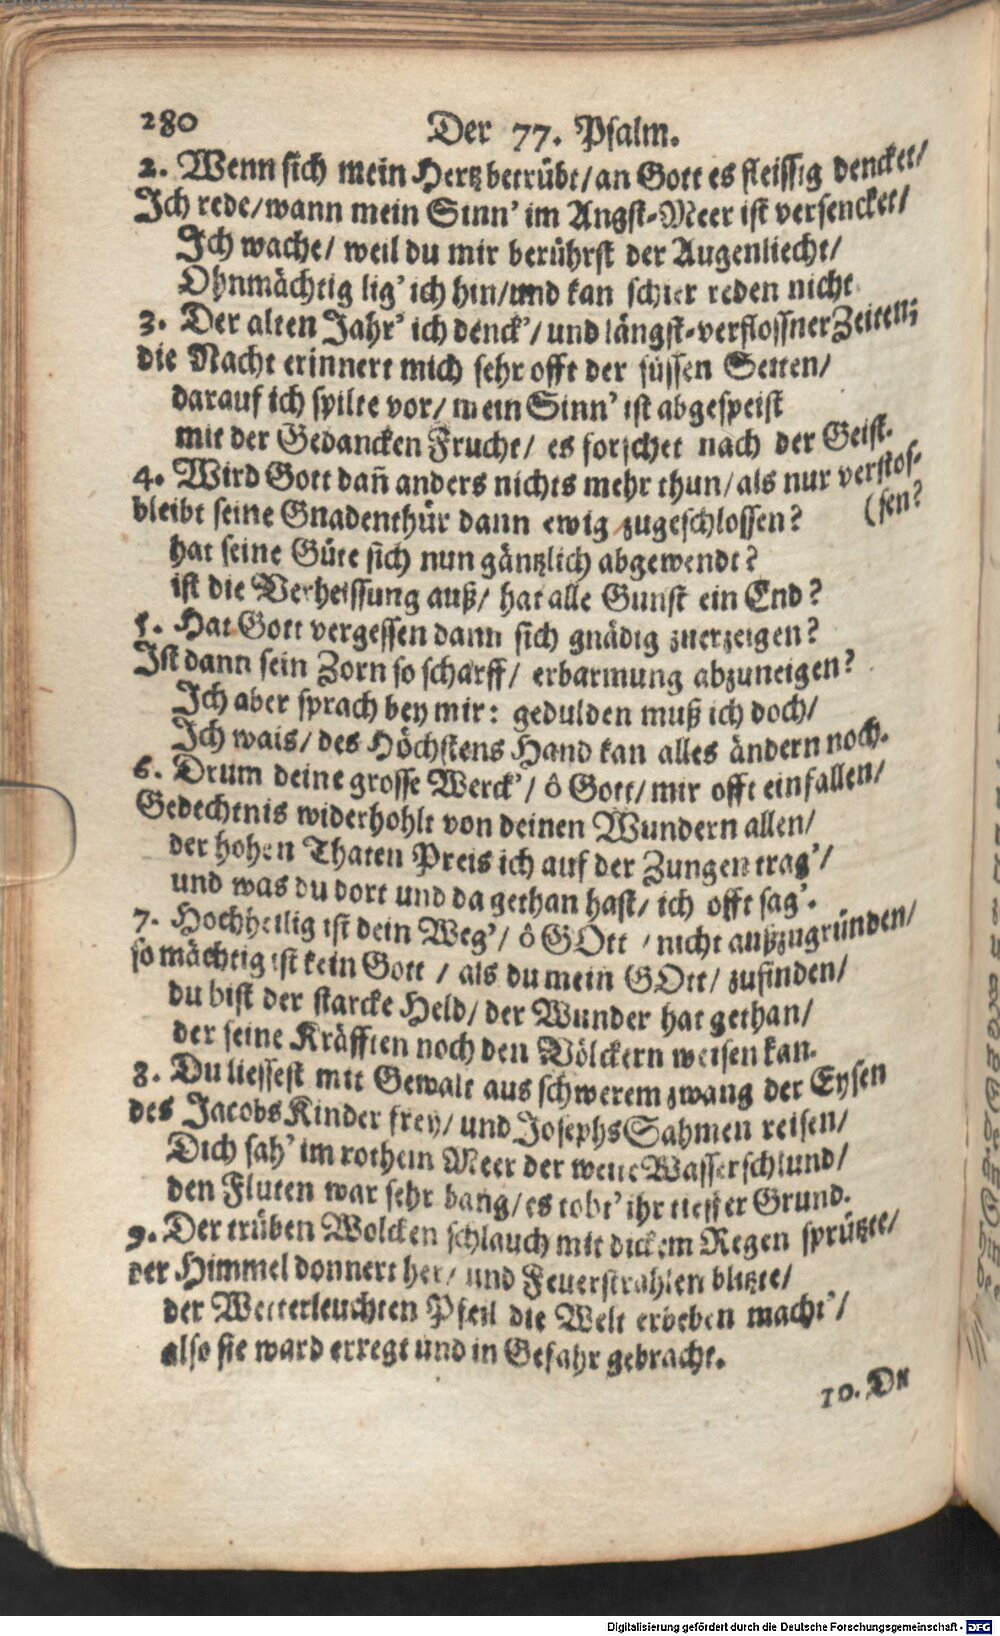 280
Der 77. Psalm.
2. Wenn sich mein Hertz betrübt/ an Gott es fleissig dencket/
Ich rede/ wann mein Sinn' im Angst-Meer ist versencket/
Ich wache/ weil du mir berührst der Augenliecht/
Ohnmächtig lig' ich hin/ und kan schier reden nicht
3. Der alten Jahr' ich denck'/ und längst-verflossner Zeiten;
die Nacht erinnert mich sehr offt der süssen Seiten/
darauf ich spilte vor/ mein Sinn' ist abgespeist
mit der Gedancken Frucht/ es forschet nach der Geist.
4. Wird Gott dañ anders nichts mehr thun/ als nur verstos-
(sen?
bleibt seine Gnadenthür dann ewig zugeschlossen?
hat seine Güte sich nun gäntzlich abgewendt?
ist die Verheissung auß/ hat alle Gunst ein End?
5. Hat Gott vergessen dann sich gnädig zuerzeigen?
Ist dann sein Zorn so scharff/ erbarmung abzuneigen?
Ich aber sprach bey mir: gedulden muß ich doch/
Ich wais/ des Höchstens Hand kan alles ändern noch.
6. Drum deine grosse Werck'/ ô Gott/ mir offt einfallen/
Gedechtnis widerhohlt von deinen Wundern allen/
der hohen Thaten Preis ich auf der Zungen trag'/
und was du dort und da gethan hast/ ich offt sag'.
7. Hochheilig ist dein Weg'/ ô GOtt / nicht außzugründen/
so mächtig ist kein Gott / als du mein GOtt/ zufinden/
du bist der starcke Held/ der Wunder hat gethan/
der seine Kräfften noch den Völckern weisen kan.
8. Du liessest mit Gewalt aus schwerem zwang der Eysen
des Jacobs Kinder frey/ und Josephs Sahmen reisen/
Dich sah' im rothem Meer der weite Wasserschlund/
den Fluten war sehr bang/ es tobt' ihr tieffer Grund.
9. Der trüben Wolcken schlauch mit dickem Regen sprützte/
der Himmel donnert her/ und Feuerstrahlen blitzte/
der Wetterleuchten Pfeil die Welt erbeben macht'/
also sie ward erregt und in Gefahr gebracht.
10. Du
Digitalisierung gefördert durch die Deutsche Forschungsgemeinschaft - DFG